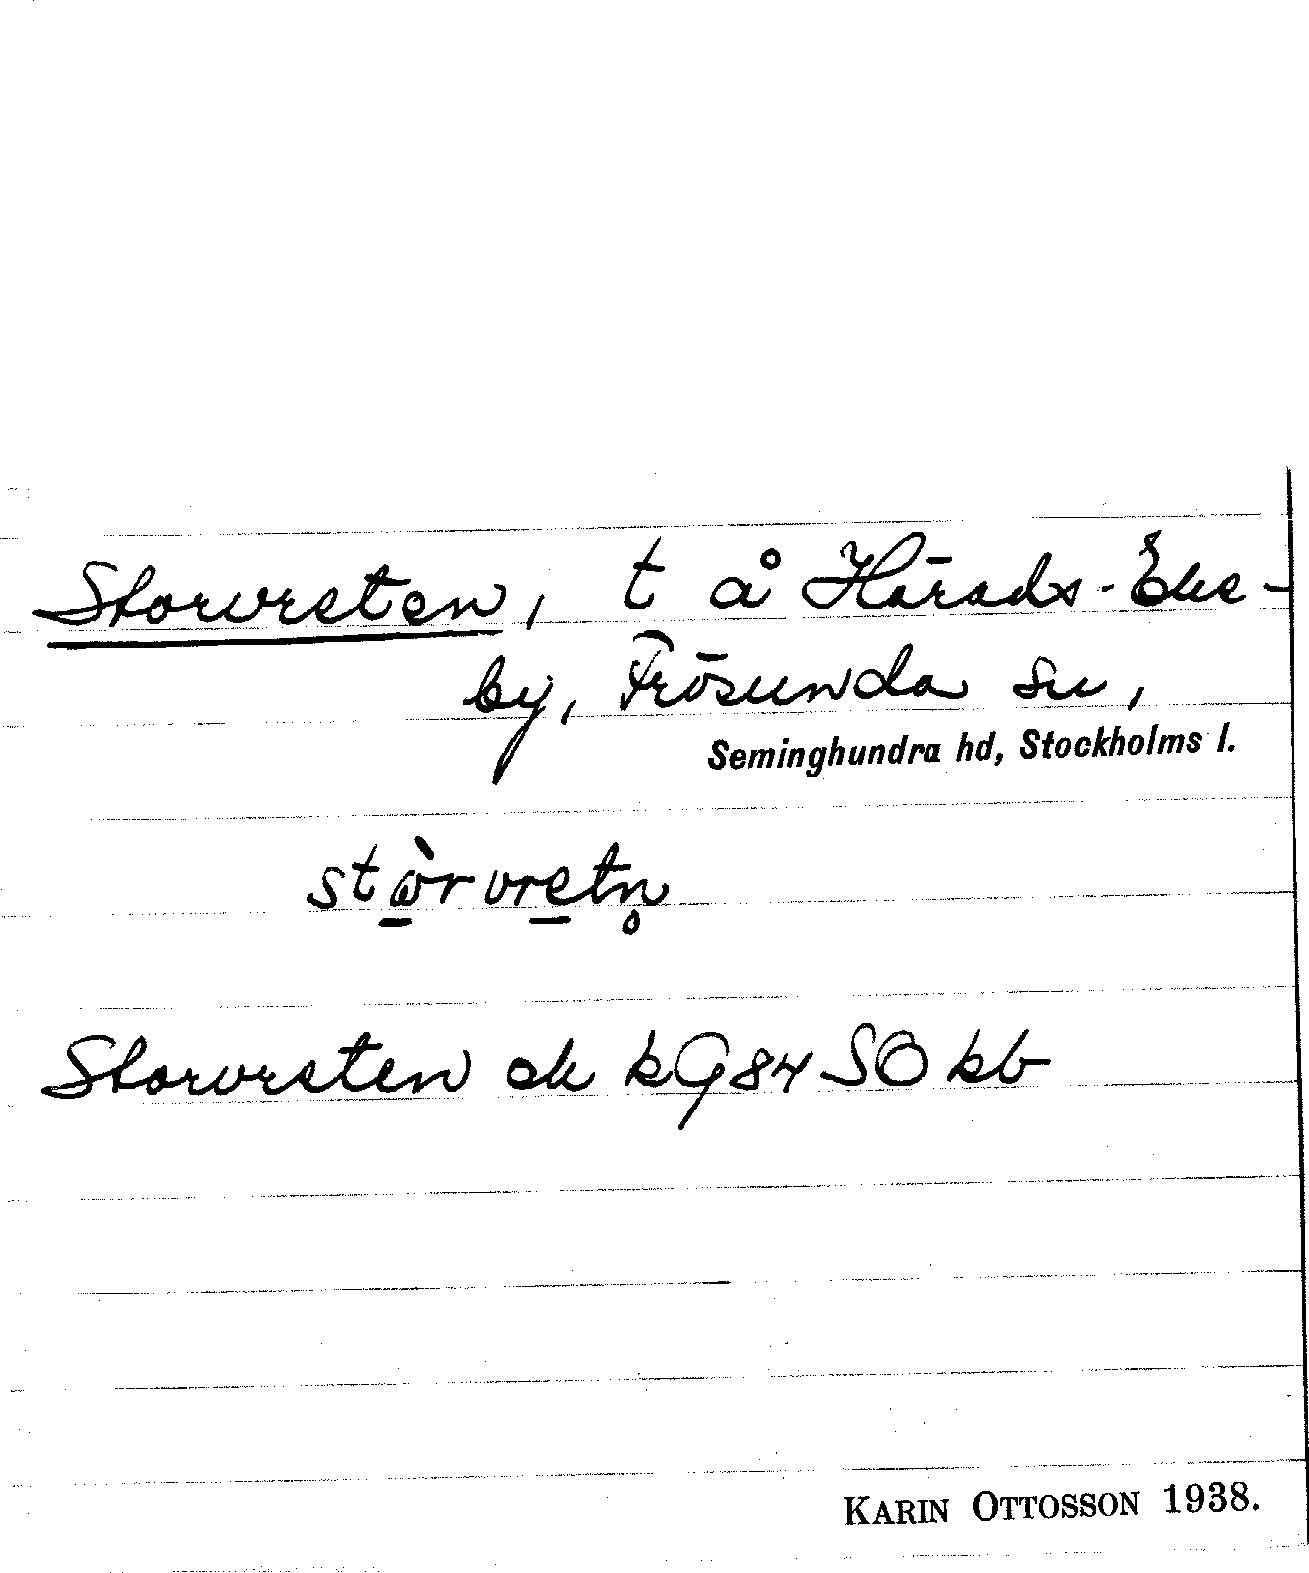 Storvreten, t å Härads-Eke-
by, Frösunda sn,
Seminghundra hd, Stockholms l.
Storvreten ek kG84 SO kb
KARIN OTTOSSON 1938.